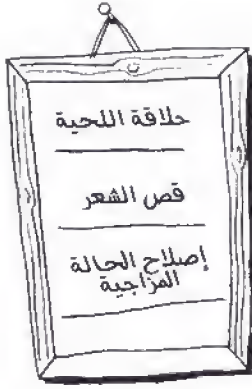 حلاقة اللحية
قص الشعر
إصلاح الحالة
المزاجية